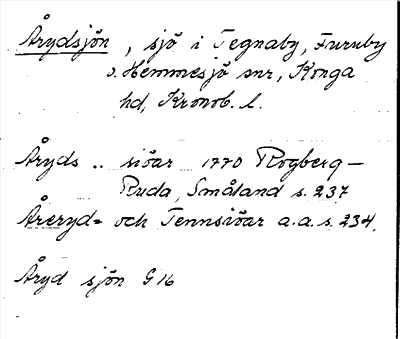 Årydsjön, sjö i Tegnaby, Furuby
o. Hemmesjö snr, Konga
hd, Kronob. l.
Åryds .. siöar 1770 Rogberg-
Ruda, Småland s. 237
Åreryd= och Tennsiöar a.a. s. 234.
Åryd sjön G 16